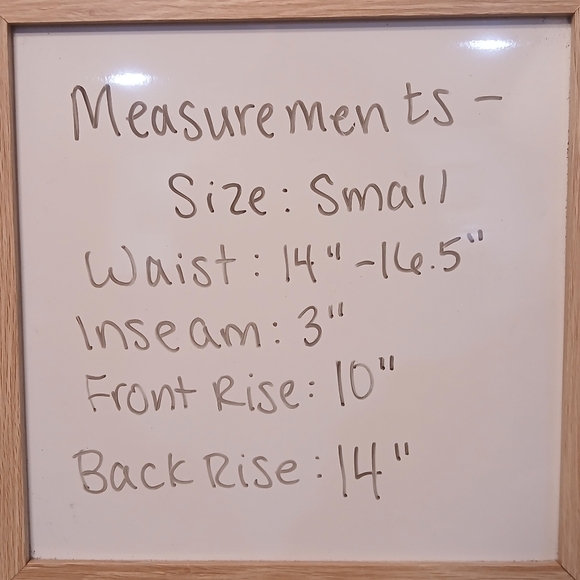 Measurements -
Size: Small
Waist: 14" - 16.5"
Inseam: 3"
Front Rise: 10"
Back Rise: 14"